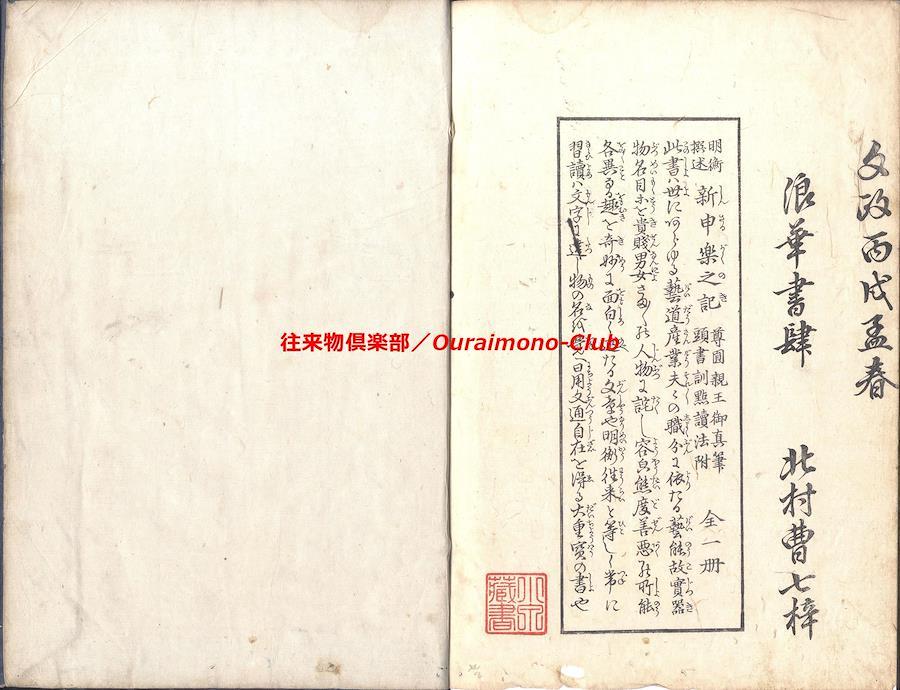 文政丙戌孟春
浪華書肆 北村曹七梓
明衡撰述 新申楽之記 尊圓親王御真筆 頭書訓點讀法附 全一册
此書ハ世にあらゆる藝道産業夫々の職分に依たる藝能故實器
物名目等を貴賤男女さま〲の人物に託し容皃態度善悪の所能
各異なる趣を奇妙に面白くしたる文章や明衡往来と等しく常に
習讀ハ文字に達し物の名を覚へ日用文通自在を得る大重寳の書也
往来物倶楽部／Ouraimono-Club
藏書